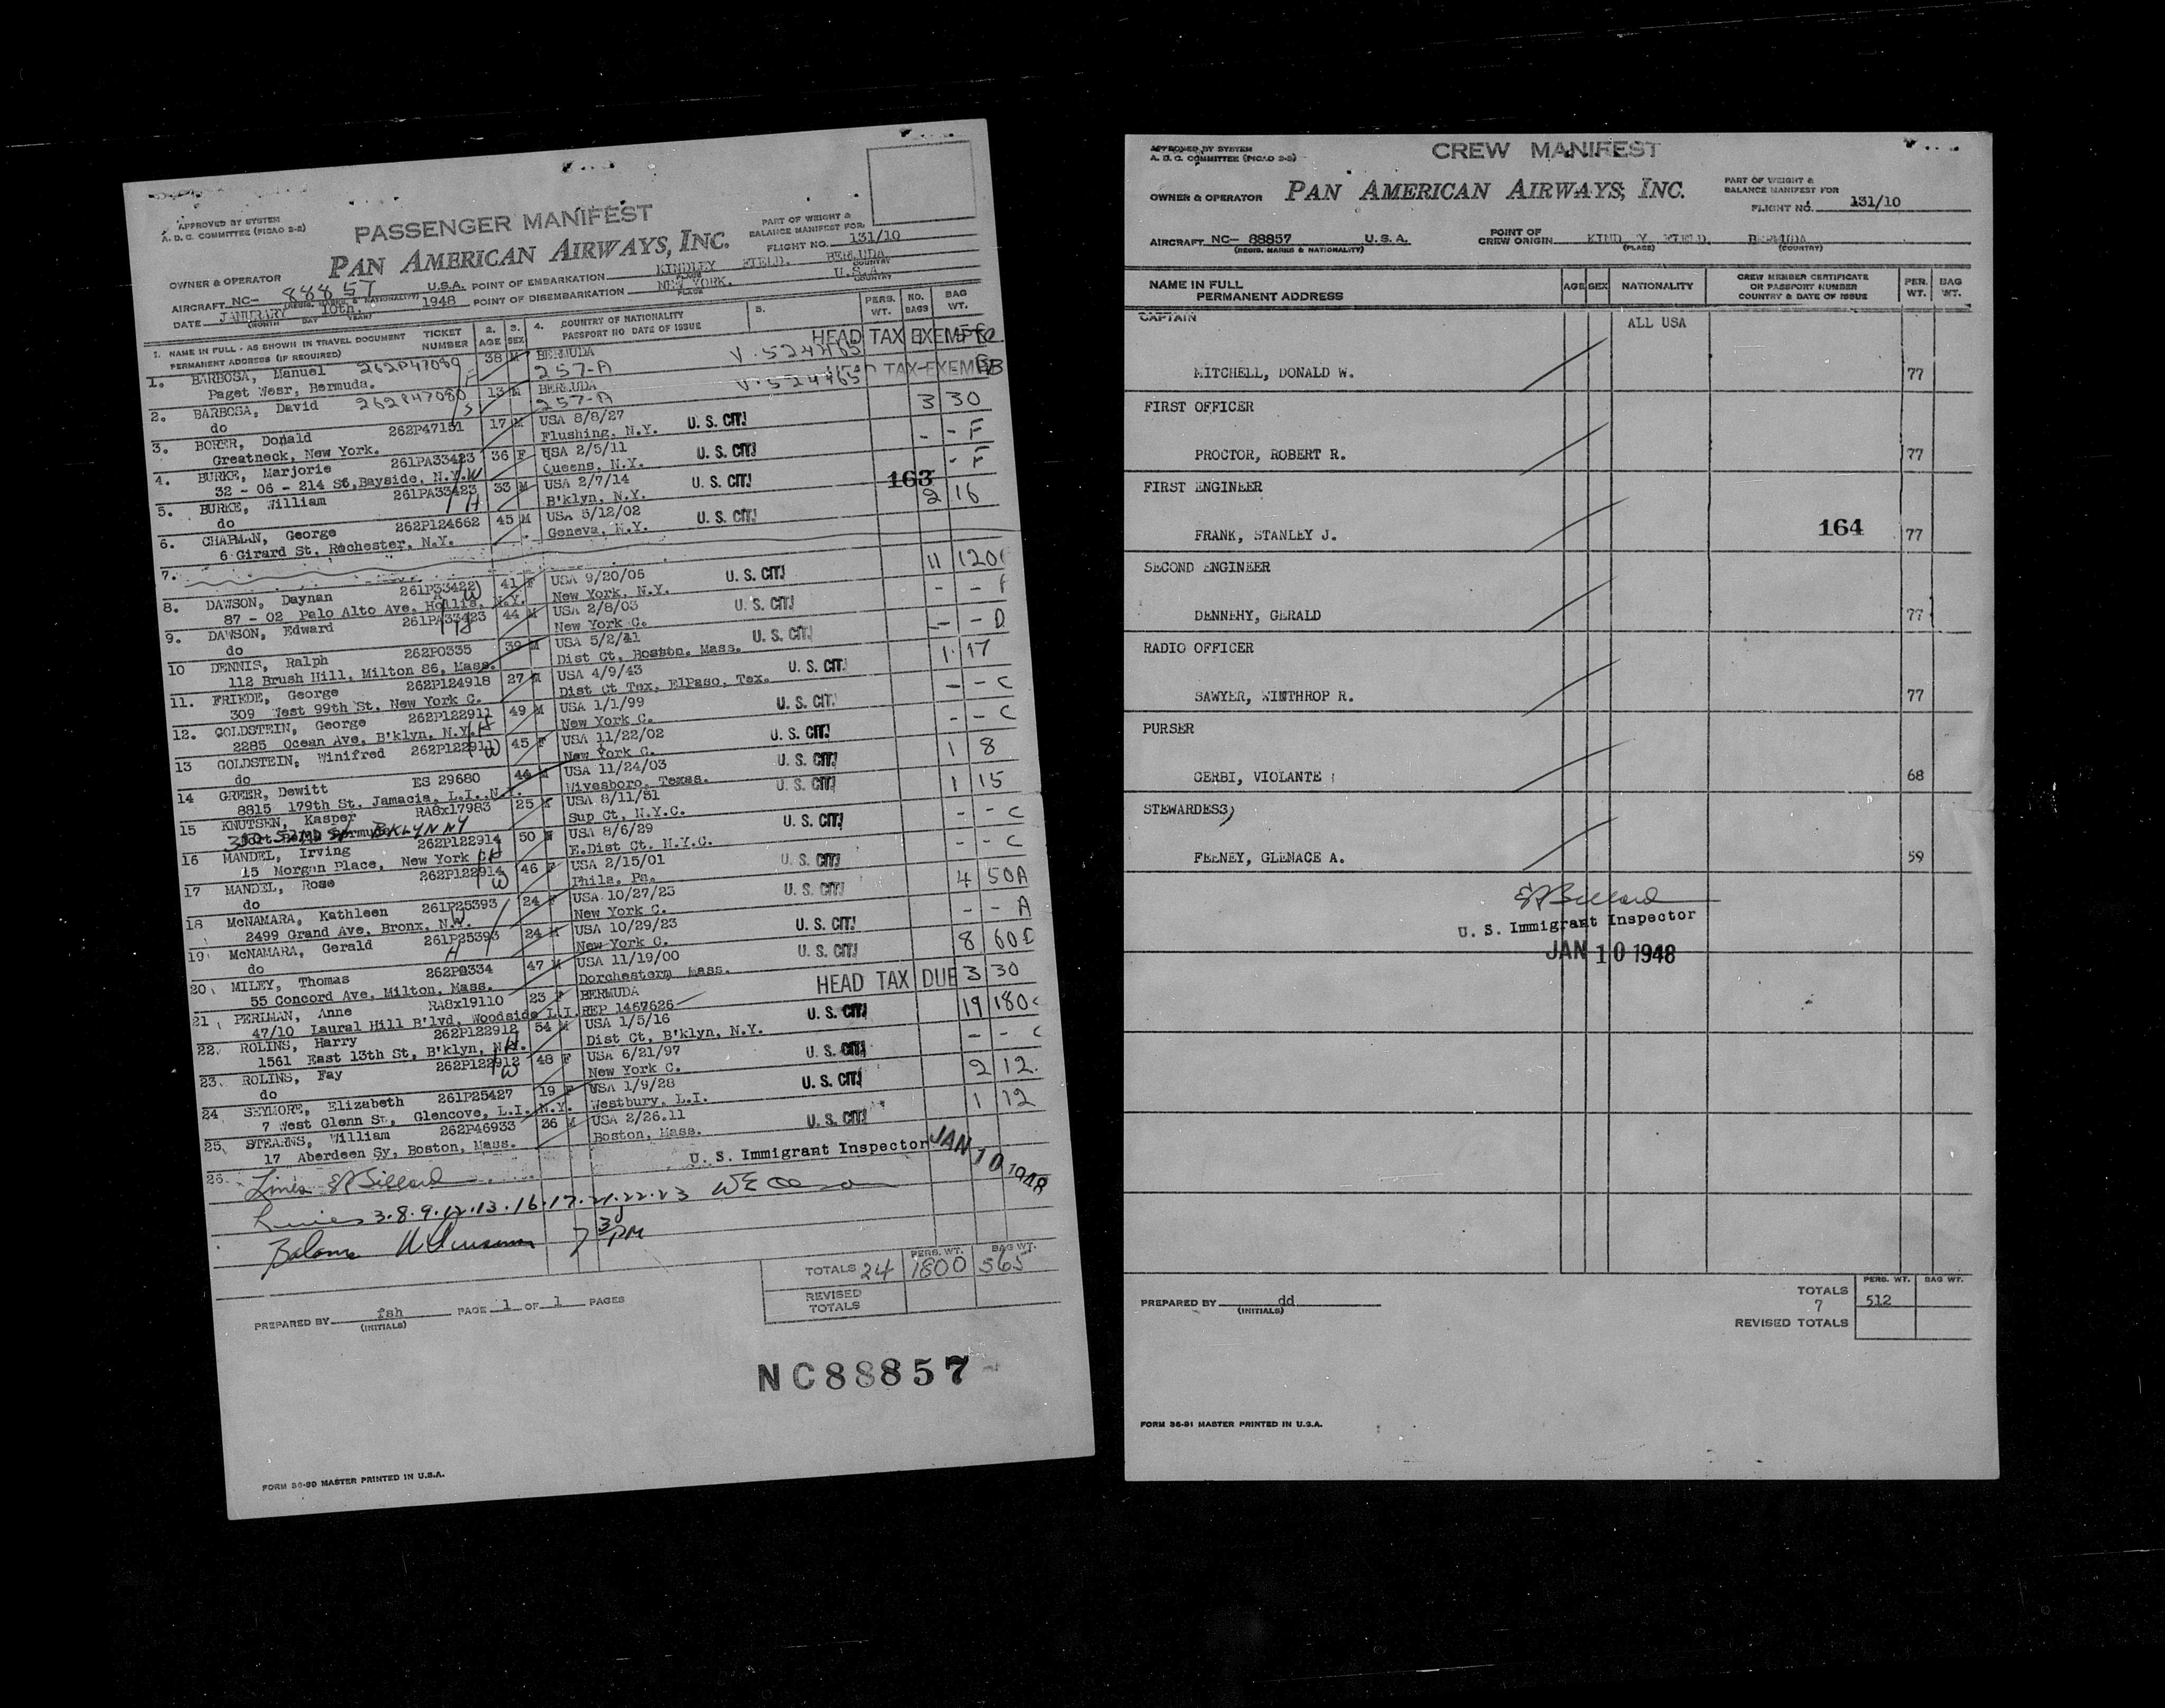 APPROVED BY SYSTEM
A. D. C. COMMITTEE (PICAO 2-2)
PASSENGER MANIFEST
PART OF WEIGHT &
BALANCE MANIFEST FOR
FLIGHT NO. 131/10
OWNER & OPERATOR PAN AMERICAN AIRWAYS, INC.
AIRCRAFT NC- 88857 U.S.A. POINT OF EMBARKATION KINDLEY FIELD. BERMUDA
(REGIS. MARKS & NATIONALITY) PLACE COUNTRY
DATE JANURARY 10th. 1948 POINT OF DISEMBARKATION NEW YORK. U.S.A.
(MONTH DAY YEAR) PLACE COUNTRY
1. NAME IN FULL - AS SHOWN IN TRAVEL DOCUMENT TICKET NUMBER 2. AGE 3. SEX 4. COUNTRY OF NATIONALITY 5. PERS. WT. NO. BAGS BAG WT.
PERMANENT ADDRESS (IF REQUIRED) PASSPORT NO DATE OF ISSUE
1. BARBOSA, Manuel 262P47089 38 M BERMUDA HEAD TAX EXEMPT
Paget Wesr, Bermuda. 257-A V.524465
2. BARBOSA, David 262P47080 13 M BERMUDA TAX-EXEMPT
do 257-A V.524465
3. BORER, Donald 262P47151 17 M USA 8/8/27 U. S. CIT. 3 30
Greatneck, New York. Flushing, N.Y.
4. BURKE, Marjorie 261PA33423 36 F USA 2/5/11 U. S. CIT. - - F
32 - 06 - 214 St, Bayside, N.Y. W Queens, N.Y.
5. BURKE, William 261PA33423 33 M USA 2/7/14 U. S. CIT. 163 - F
do H B'klyn, N.Y.
6. CHAPMAN, George 262P124662 45 M USA 5/12/02 U. S. CIT. 2 16
6 Girard St, Rochester, N.Y. Geneva, N.Y.
7.
8. DAWSON, Daynan 261P33422 41 F USA 9/20/05 U. S. CIT. 11 120
87 - 02 Palo Alto Ave, Hollis, N.Y. W New York, N.Y.
9. DAWSON, Edward 261PA33423 44 M USA 2/8/03 U. S. CIT. - -
do H New York C.
10 DENNIS, Ralph 262P0335 39 M USA 5/2/41 U. S. CIT. - - D
112 Brush Hill, Milton 86, Mass. Dist Ct, Boston, Mass.
11. FRIEDE, George 262P124918 27 M USA 4/9/43 U. S. CIT. 1 17
309 West 99th St, New York C. Dist Ct Tex, ElPaso, Tex.
12. GOLDSTEIN, George 262P122911 49 M USA 1/1/99 U. S. CIT. - - C
2285 Ocean Ave, B'klyn, N.Y. H New York C.
13 GOLDSTEIN, Winifred 262P122911 45 F USA 11/22/02 U. S. CIT. - - C
do W New York C.
14 GREER, Dewitt ES 29680 44 M USA 11/24/03 U. S. CIT. 1 8
8815 179th St, Jamacia, L.I., N.Y. Wivesboro, Texas.
15 KNUTSEN, Kasper RA8x17983 25 USA 8/11/51 U. S. CIT. 1 15
BKLYN NY Sup Ct, N.Y.C.
16 MANDEL, Irving 262P122914 50 M USA 8/6/29 U. S. CIT. - - C
15 Morgan Place, New York C. H E.Dist Ct. N.Y.C.
17 MANDEL, Rose 262P122914 46 F USA 2/15/01 U. S. CIT. - - C
do W Phila, Pa.
18 McNAMARA, Kathleen 261P25393 24 F USA 10/27/23 U. S. CIT. 4 50A
2499 Grand Ave, Bronx, N.Y. New York C.
19 McNAMARA, Gerald 261P25393 24 M USA 10/29/23 U. S. CIT. - - A
do H New York C.
20 MILEY, Thomas 262P0334 47 M USA 11/19/00 U. S. CIT. 8 60D
55 Concord Ave, Milton, Mass. Dorchesterm Mass.
21 PERLMAN, Anne RA8x19110 23 F BERMUDA HEAD TAX DUE 3 30
47/10 Laural Hill B'lvd, Woodside L.I. REP 1467626
22. ROLINS, Harry 262P122912 54 M USA 1/5/16 U. S. CIT. 19 180C
1561 East 13th St, B'klyn, N.Y. H Dist Ct, B'klyn, N.Y.
23. ROLINS, Fay 262P122912 48 F USA 6/21/97 U. S. CIT. - - C
do W New York C.
24 SEYMORE, Elizabeth 261P25427 19 F USA 1/9/28 U. S. CIT. 2 12.
7 West Glenn St, Glencove, L.I. N.Y. Westbury, L.I.
25. STEARNS, William 262P46933 36 M USA 2/26.11 U. S. CIT. 1 12
17 Aberdeen Sy, Boston, Mass. Boston, Mass.
26. U. S. Immigrant Inspector JAN 10 1948
Lines
Lines 3.8.9.12.13.16.17.21.22.23
Balance 7 30 PM
PERS. WT. BAG WT.
TOTALS 24 1800 565
REVISED
TOTALS
PREPARED BY fsh PAGE 1 OF 1 PAGES
(INITIALS)
NC88857
FORM 36-90 MASTER PRINTED IN U.S.A.
APPROVED BY SYSTEM
A. D. C. COMMITTEE (PICAO 2-2)
CREW MANIFEST
OWNER & OPERATOR PAN AMERICAN AIRWAYS, INC.
PART OF WEIGHT &
BALANCE MANIFEST FOR
FLIGHT NO. 131/10
AIRCRAFT NC- 88857 U.S.A. POINT OF CREW ORIGIN KINDLEY FIELD. BERMUDA
(REGIS. MARKS & NATIONALITY) (PLACE) (COUNTRY)
NAME IN FULL AGE SEX NATIONALITY CREW MEMBER CERTIFICATE OR PASSPORT NUMBER COUNTRY & DATE OF ISSUE PER. WT. BAG WT.
PERMANENT ADDRESS
CAPTAIN ALL USA
MITCHELL, DONALD W. 77
FIRST OFFICER
PROCTOR, ROBERT R. 77
FIRST ENGINEER
FRANK, STANLEY J. 164 77
SECOND ENGINEER
DENNEHY, GERALD 77
RADIO OFFICER
SAWYER, WINTHROP R. 77
PURSER
GERBI, VIOLANTE 68
STEWARDESS
FEENEY, GLENACE A. 59
U. S. Immigrant Inspector
JAN 10 1948
PERS. WT. BAG WT.
TOTALS
7 512
REVISED TOTALS
PREPARED BY dd
(INITIALS)
FORM 36-91 MASTER PRINTED IN U.S.A.